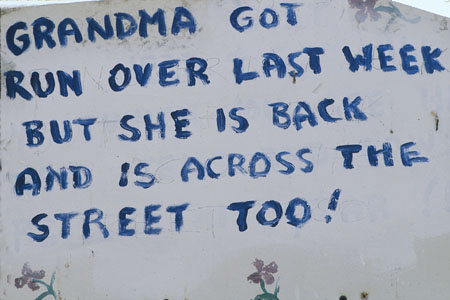 GRANDMA GOT
RUN OVER LAST WEEK
BUT SHE IS BACK
AND IS ACROSS THE
STREET TOO!